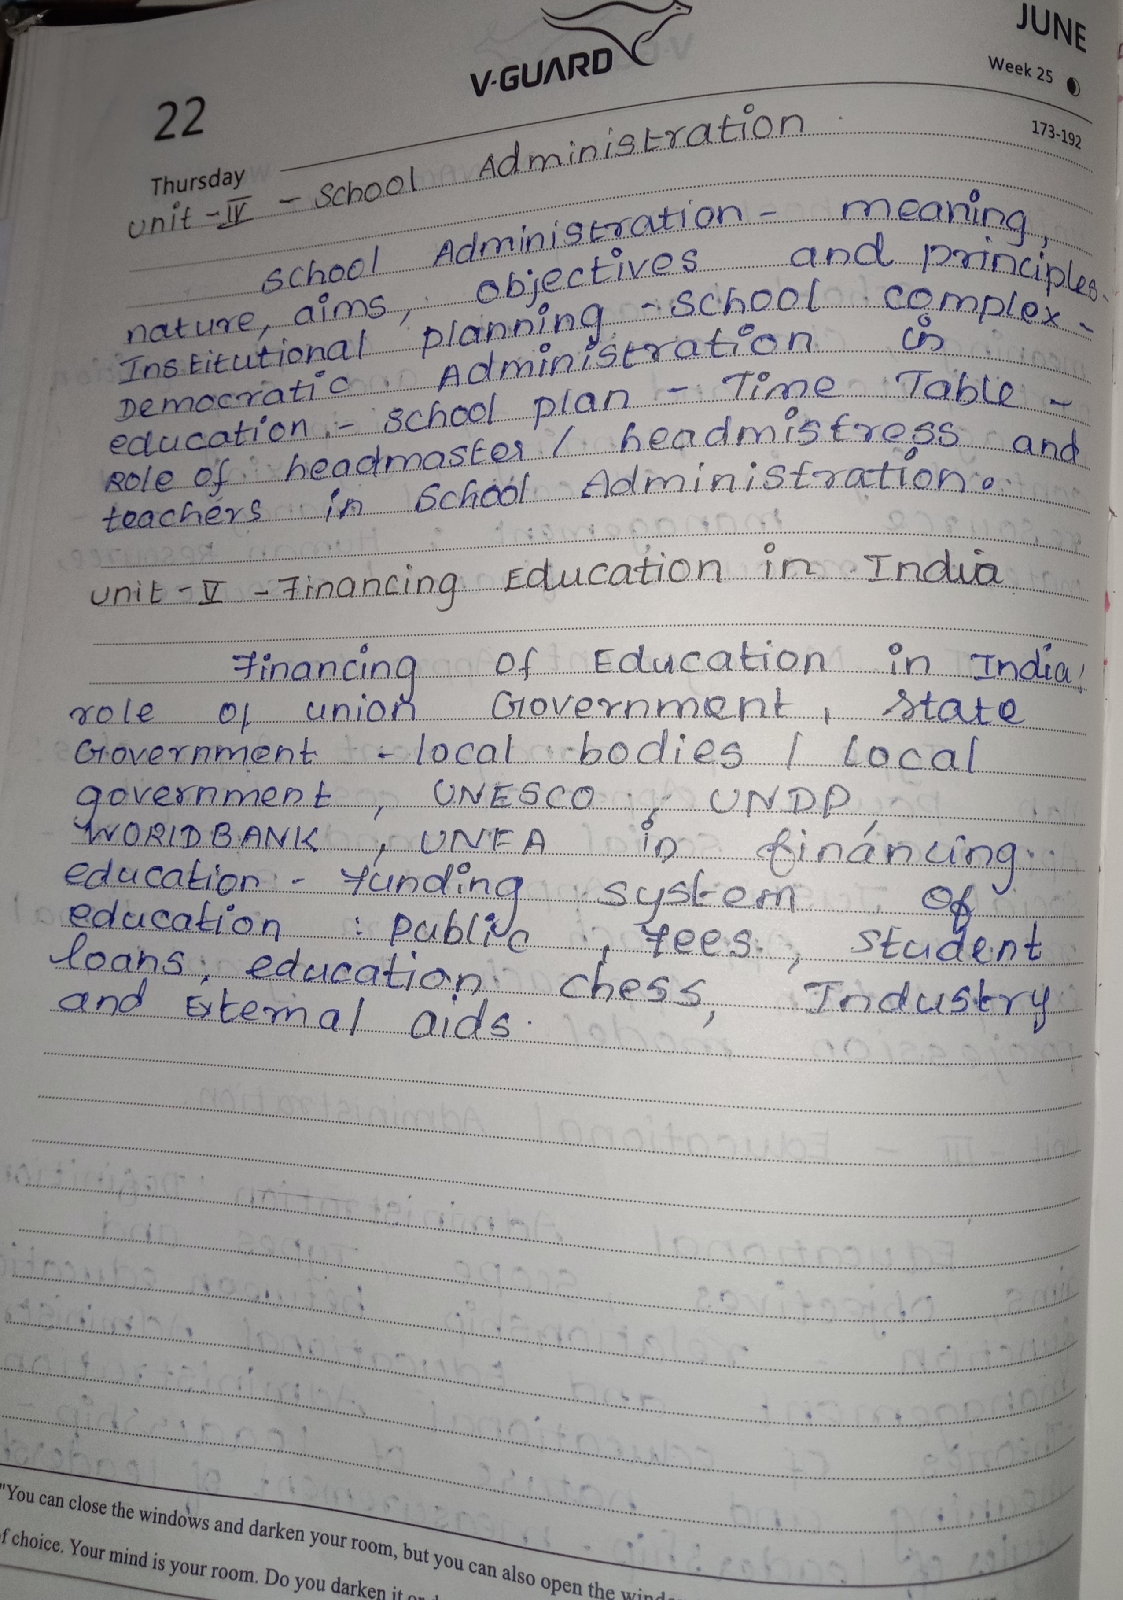 V-GUARD
JUNE
Week 25
22
173-192
Thursday
unit - IV - School Administration
School Administration - meaning,
nature, aims, objectives and principles.
Institutional planning - school complex -
Democratic Administration in
education - school plan - Time Table -
Role of headmaster / headmistress and
teachers in School Administration.
unit - V - Financing Education in India
Financing of Education in India:
role of union Government, state
Government - local bodies / local
government, UNESCO, UNDP,
WORLDBANK, UNFA in financing
education - funding system of
education : public, fees, student
loans, education chess, Industry
and External aids.
"You can close the windows and darken your room, but you can also open the
of choice. Your mind is your room. Do you darken it